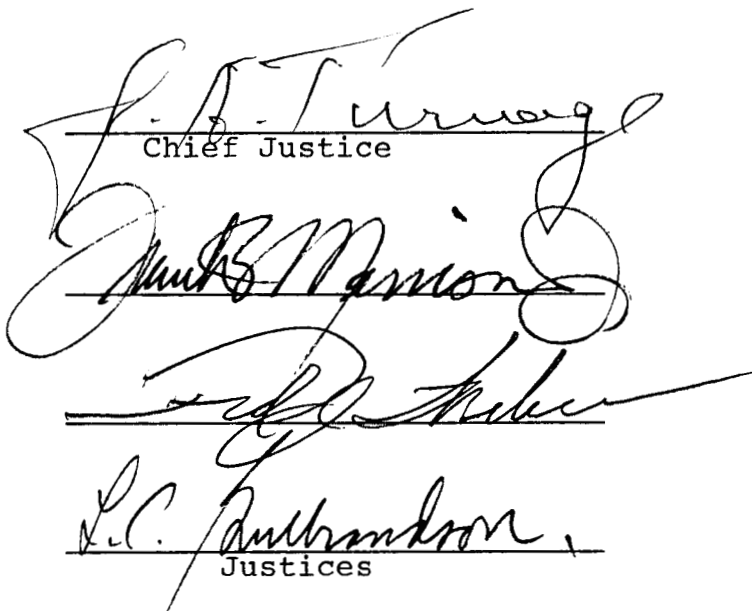 J. A. Turnage
Chief Justice
Frank B Morrison
L.C. Gulbrandson,
Justices